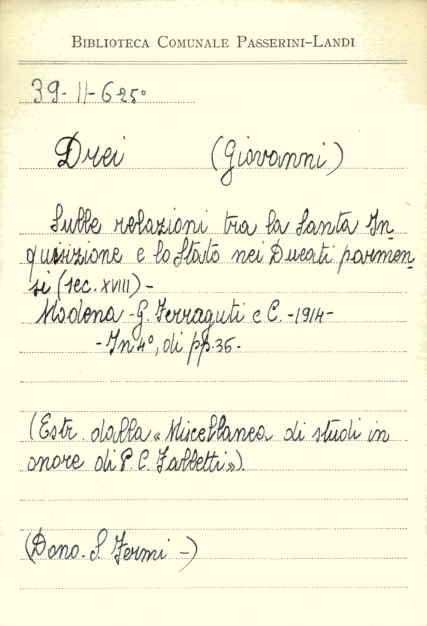 BIBLIOTECA COMUNALE PASSERINI-LANDI
39-11-625°
Drei (Giovanni)
Sulle relazioni tra la Santa In
quisizione e lo Stato nei Ducati parmen
si (sec. XVIII) -
Modena - G. Ferraguti e C. - 1914 -
- In 4°, di pp. 36 -
(Estr. dalla « Miscellanea di studi in
onore di P. C. Falletti »).
(Dono. S. Fermi -)